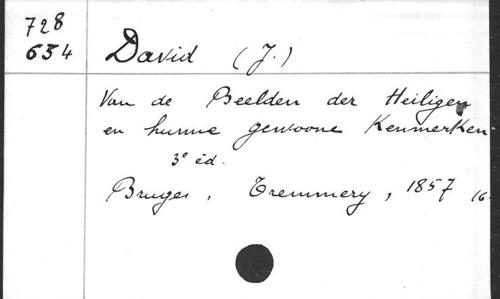 728
654 David (J.)
Van de Beelden der Heiligen
en hunne gewoone Kenmerken.
3e éd.
Bruges, Tremmery, 1857 16.